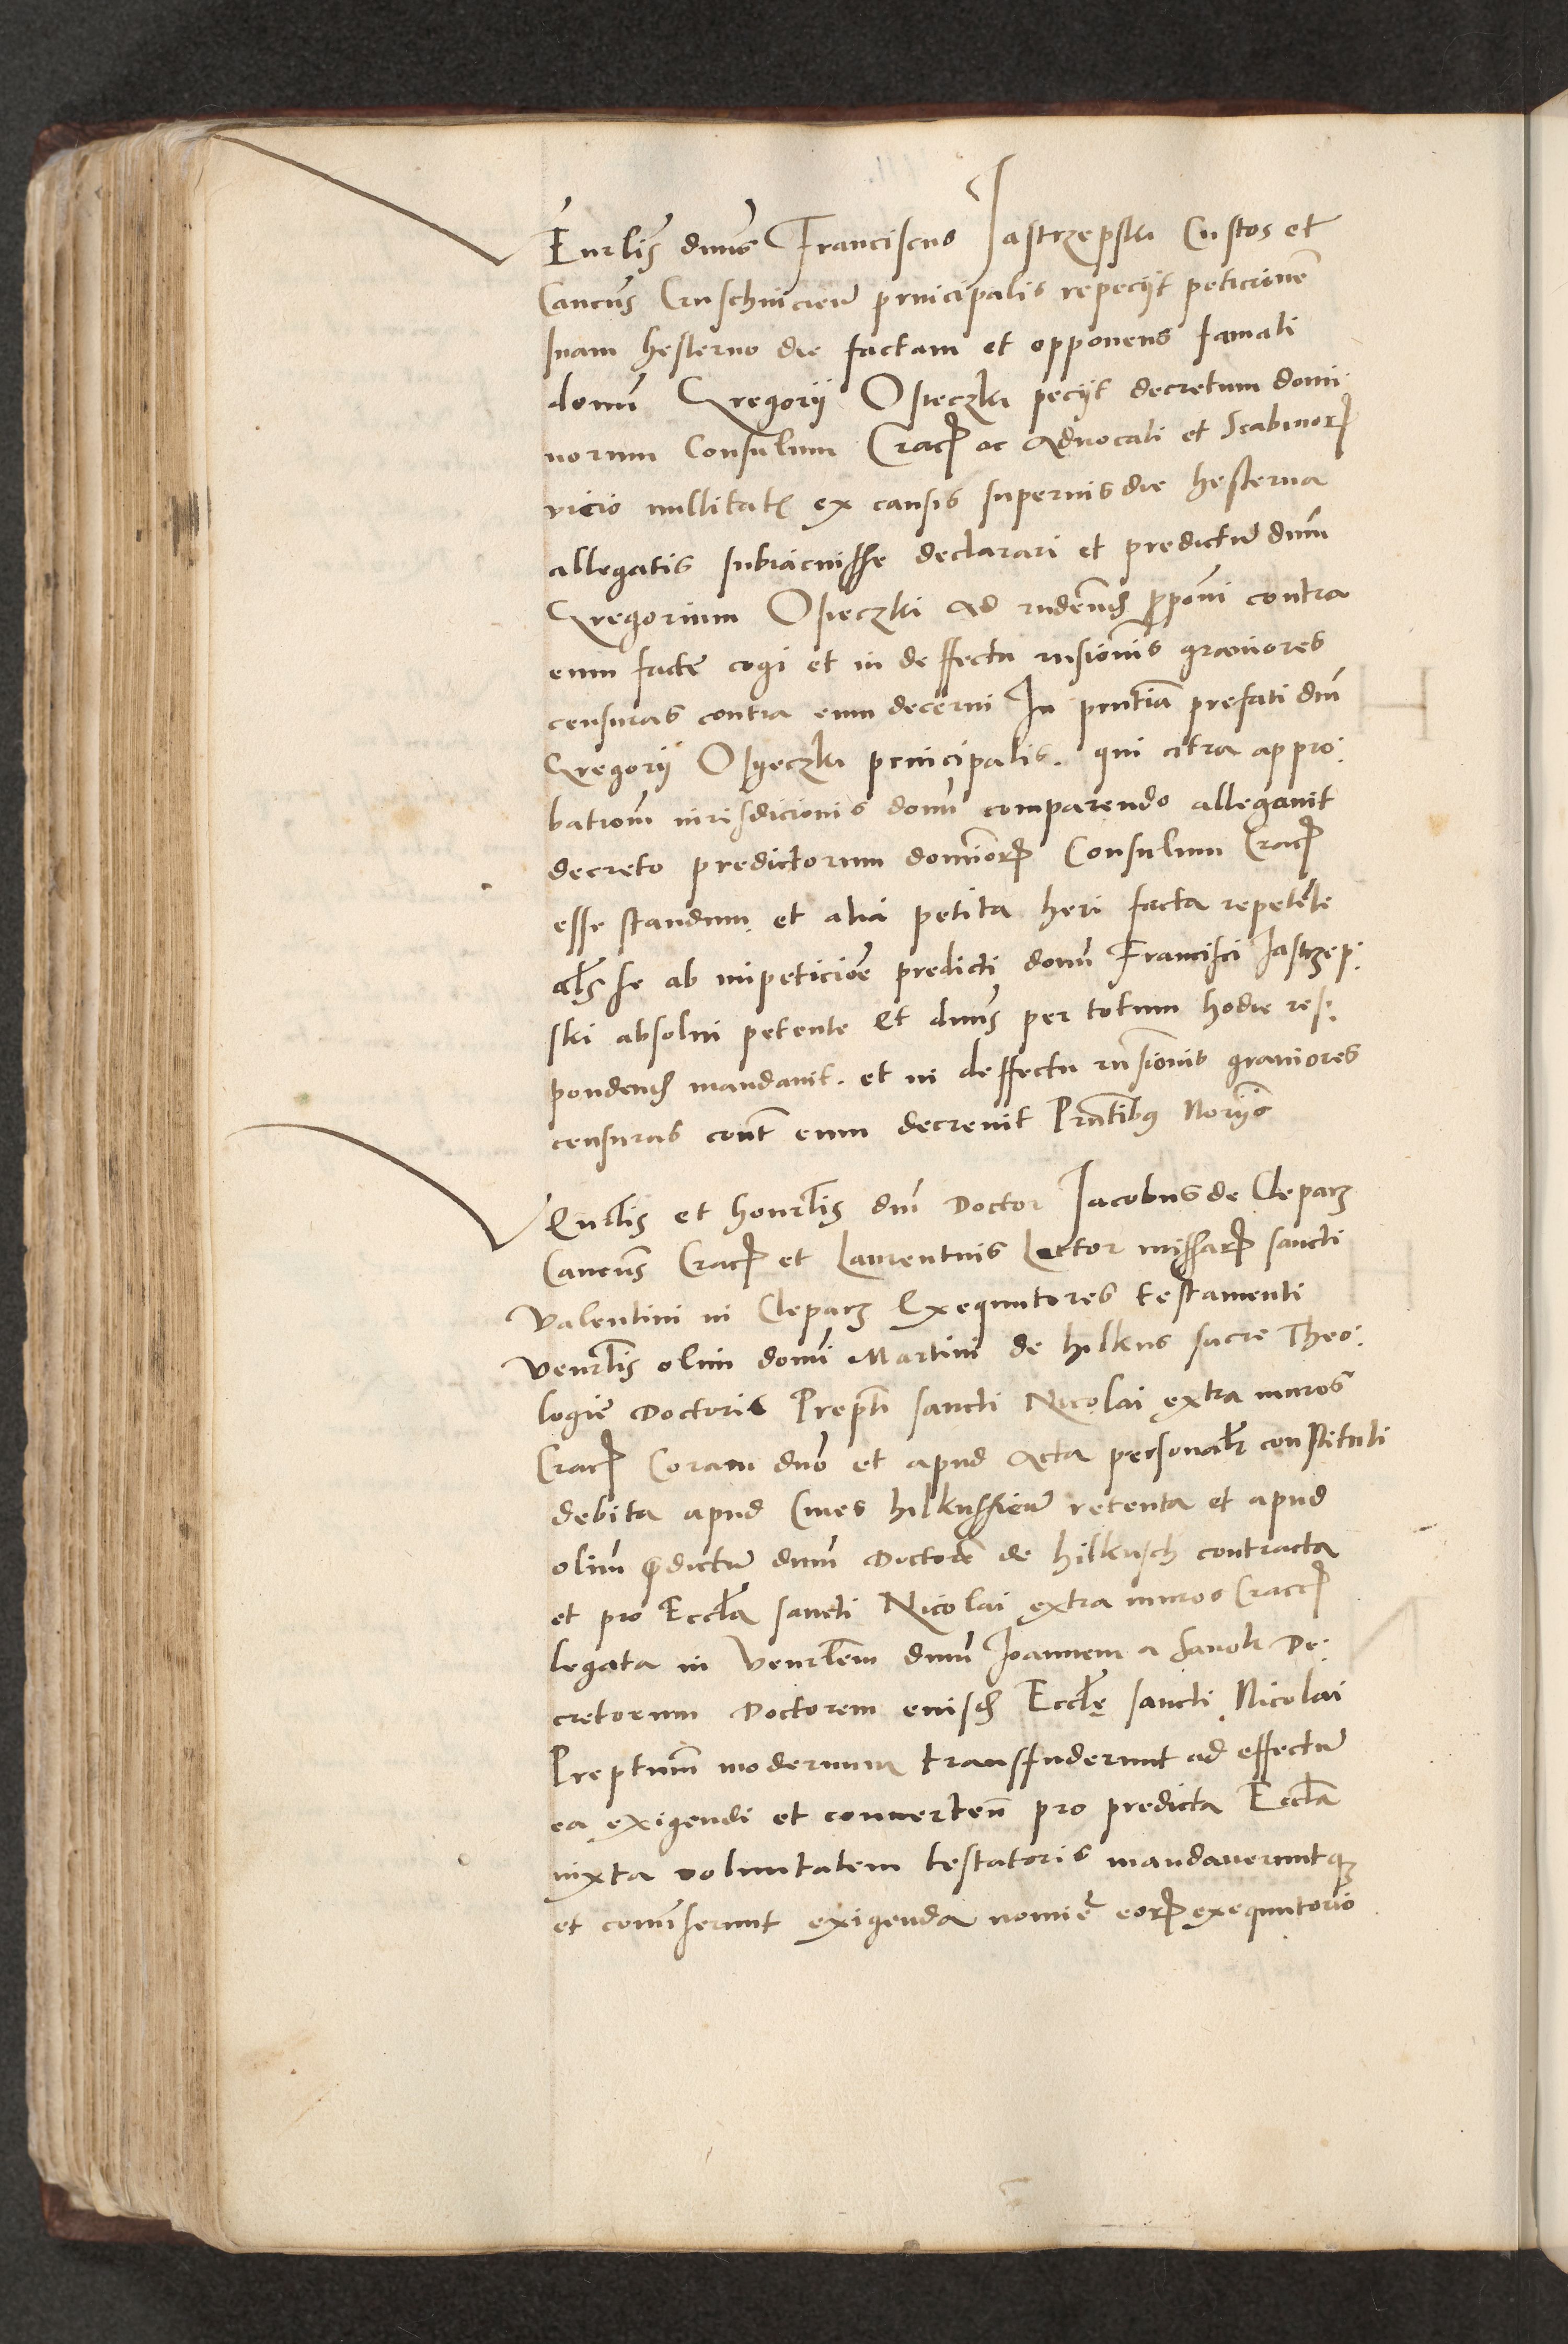 Venrlis dnus Franciscus Jastrzepski Custos et
Cancus Cruschvicien principalis repeciit peticionem
suam hesterno die factam et opponens famati
domi Gregorii Osieczki peciit decretum domi
norum Consulum Crac ac Advocati et Scabinor
vicio nullitatis ex causis superius die hesterna
allegatis subiacuisse declarari et predictum dnum
Gregorium Osieczki ad rndend proponi contra
eum facte cogi et in deffectu rnsionis graviores
censuras contra eum decerni In prntia prefati dni
Gregorii Osyeczki principalis. qui citra appro
bationem iurisdicionis domi comparendo allegavit
decreto predictorum dominor Consulum Crac
esse standum et alia petita heri facta repetente
als se ab impeticione predicti domi Francisci Jastrzep
ski absolvi petente Et dnus per totum hodie res
pondend mandavit. et in deffectu rnsionis graviores
censuras cont eum decrevit Prntibus Noriis
Venrlis et honrlis dni Doctor Jacobus de Cleparz
Cancus Crac et Laurentius Lector missar sancti
Valentini in Cleparz Exequutores testamenti
Venrlis olim domi Martini de hilkus sacre Theo
logie Doctoris Prepti sancti Nicolai extra muros
Crac Coram dno et apud Acta personalr constituti
debita apud Cives hilkussien retenta et apud
olim predictum dnum Doctorem de hilkusch contracta
et pro Eccla sancti Nicolai extra muros Crac
legata in Venrlem dnum Joannem a Sanok De
cretorum Doctorem eiusd Eccle sancti Nicolai
Preptum modernum transfuderunt ad effectum
ea exigendi et converten pro predicta Eccla
iuxta voluntatem testatoris mandaveruntque
et comiserunt exigenda nomine eor exequutorio